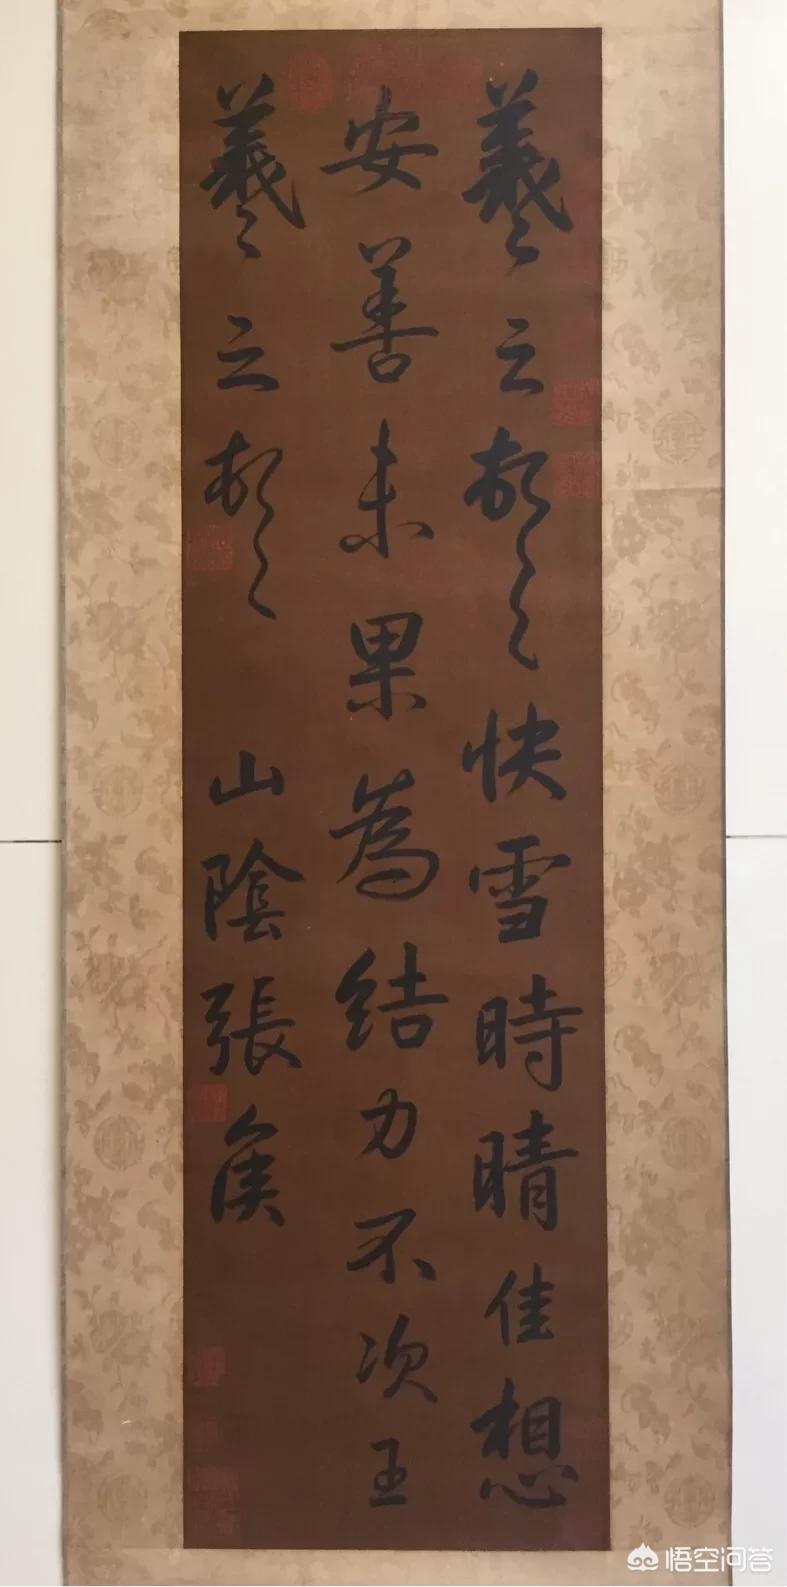 羲之頓首快雪時晴佳想
安善未果為結力不次王
羲之頓首 山陰張侯
悟空问答